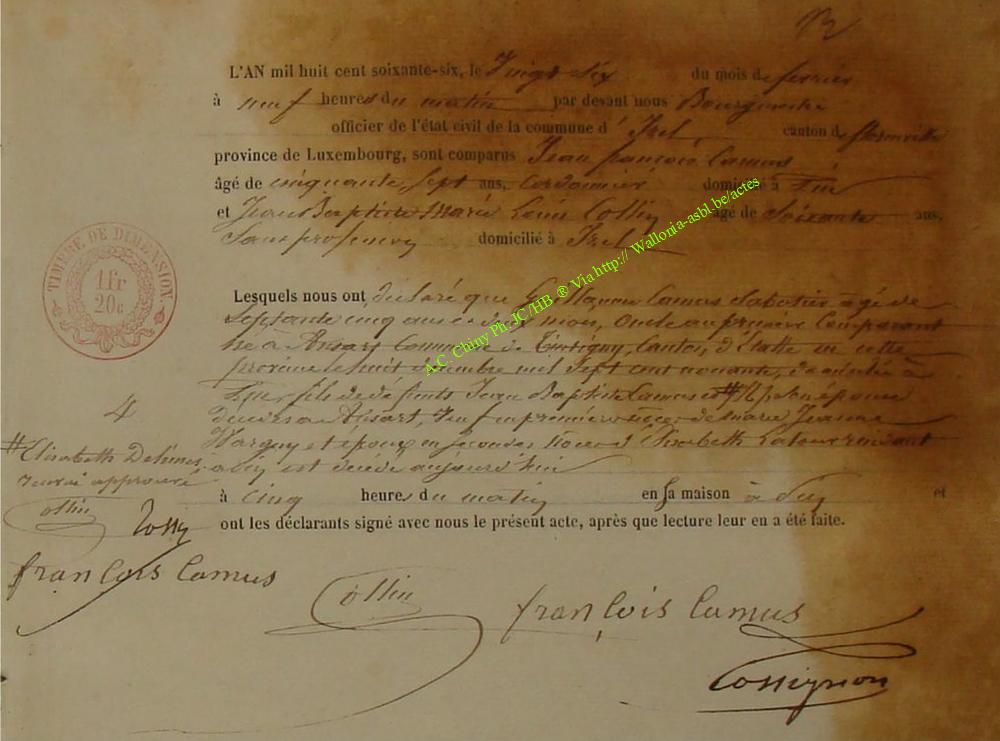 L'AN mil huit cent soixante-six, le Vingt Six du mois de fevrier
à neuf heures du matin par devant nous Bourgmestre
officier de l'état civil de la commune d'Izel, canton de florenville
province de Luxembourg, sont comparus Jean françois Camus
âgé de cinquante sept ans, Cordonnier domicilié à
et Jean Baptiste Marie Louis Collin âgé de Soixante ans,
Sans profession domicilié à Izel
TIMBRE DE DIMENSION.
1 fr
20 c
Lesquels nous ont déclaré que Camus Sabotier agé de
Septante cinq ans et mois, Oncle au premier Comparant
né à Ansart Commune de Tintigny, Canton d'Etalle en cette
province le huit décembre mil Sept cent nonante, domicilié à
fils de défunts Jean Baptiste Camus et # son épouse
décédés à Ansart, Veuf en premières noces de Marie Jeanne
Wargny et époux en secondes noces d'Elisabeth Latour
est décédé aujourd'hui
4
# Elisabeth
renvoi approuvé
Collin
à Cinq heures du matin en sa maison à et
ont les déclarants signé avec nous le présent acte, après que lecture leur en a été faite.
françois Camus
Collin
françois Camus
Cossignon
A.C. Chiny Ph. JC/HB ® Via http:// Wallonia-asbl.be/actes